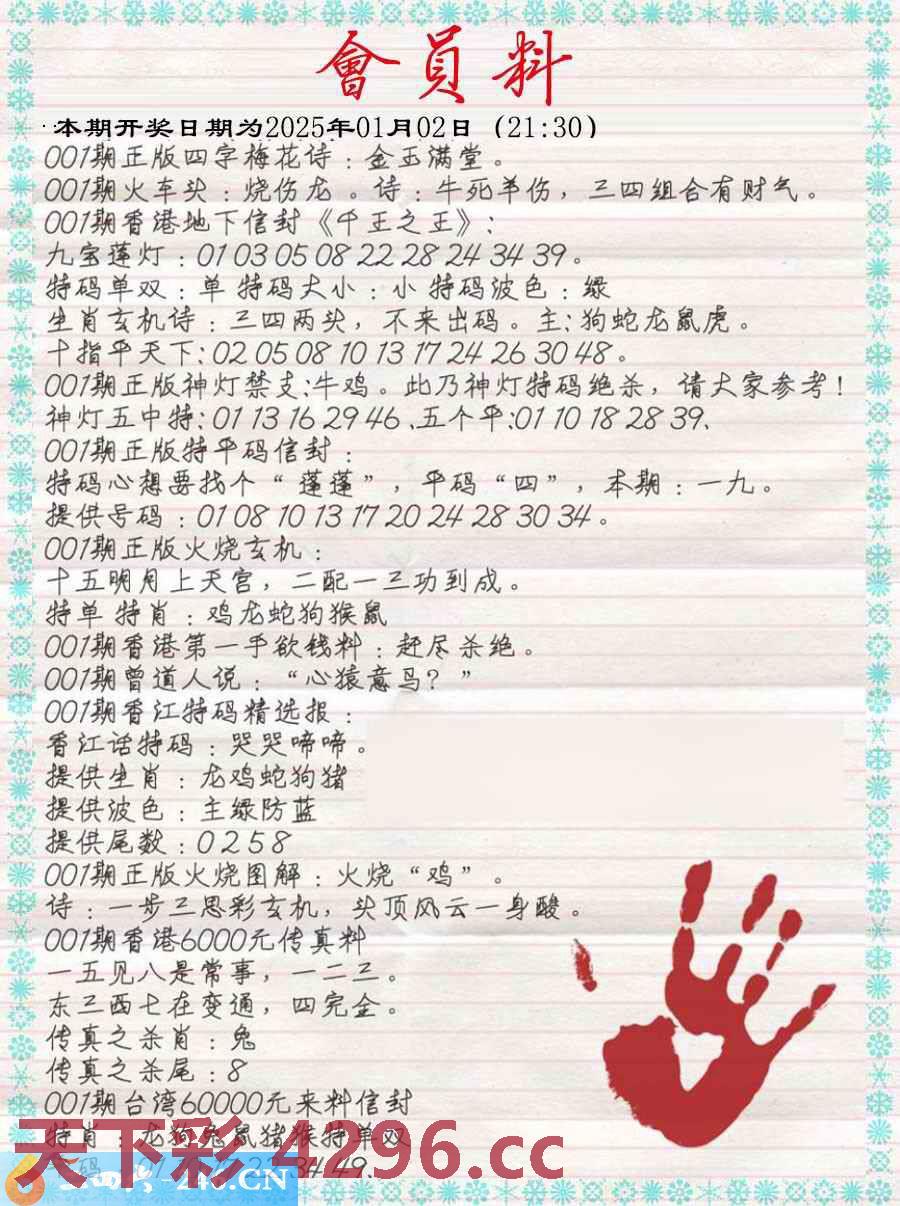 會員料
本期开奖日期为2025年01月02日（21:30）
001期正版四字梅花诗：金玉满堂。
001期火车头：烧伤龙。诗：牛死羊伤，三四组合有财气。
001期香港地下信封《千王之王》：
九宝莲灯：01 03 05 08 22 28 24 34 39。
特码单双：单 特码大小：小 特码波色：绿
生肖玄机诗：三四两头，不来出码。主：狗蛇龙鼠虎。
十指平天下：02 05 08 10 13 17 24 26 30 48。
001期正版神灯禁支：牛鸡。此乃神灯特码绝杀，请大家参考！
神灯五中特：01 13 16 29 46、五个平：01 10 18 28 39、
001期正版特平码信封：
特码心想要找个“蓬蓬”，平码“四”，本期：一九。
提供号码：01 08 10 13 17 20 24 28 30 34。
001期正版火烧玄机：
十五明月上天宫，二配一三功到成。
特单 特肖：鸡龙蛇狗猴鼠
001期香港第一手欲钱料：赶尽杀绝。
001期曾道人说：“心猿意马？”
001期香江特码精选报：
香江话特码：哭哭啼啼。
提供生肖：龙鸡蛇狗猪
提供波色：主绿防蓝
提供尾数：0 2 5 8
001期正版火烧图解：火烧“鸡”。
诗：一步三思彩玄机，头顶风云一身酸。
001期香港6000元传真料
一五见八是常事，一二三。
东三西七在变通，四完金。
传真之杀肖：兔
传真之杀尾：8
001期台湾60000元来料信封
特肖：龙狗兔鼠猪猴特单双
天下彩 4296.cc
34 49、
246.CN